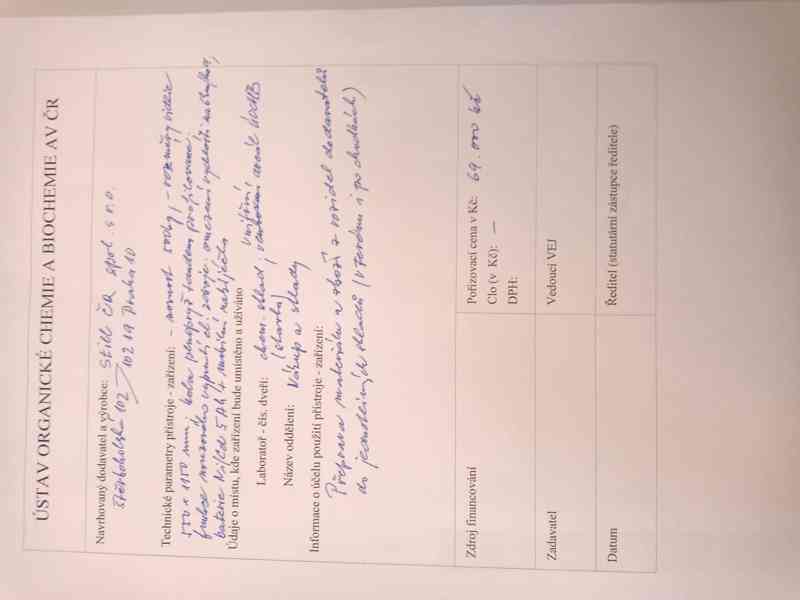 ÚSTAV ORGANICKÉ CHEMIE A BIOCHEMIE AV ČR
Navrhovaný dodavatel a výrobce: Still ČR spol. s r.o.
Štěrboholská 102 102 19 Praha 10
Technické parametry přístroje - zařízení: - nosnost 500kg, - rozměry vidlic
550 x 1150 mm, kola plnopryž tandem profilované,
funkce nouzového vypnutí el. zdroje, omezení rychlosti
baterie 5 Ah + mobilní nabíječka
Údaje o místu, kde zařízení bude umístěno a užíváno
Laboratoř - čís. dveří: chem. sklad, vnitřní areál ÚOCHB
Název oddělení: Nákup a sklady
Informace o účelu použití přístroje - zařízení:
Přeprava materiálu a zboží z vozidel dodavatelů
do jednotlivých skladů (v terénu i po chodbách)
Zdroj financování
Pořizovací cena v Kč: 69.000 Kč
Clo (v Kč): —
DPH:
Zadavatel
Vedoucí VEJ
Datum
Ředitel (statutární zástupce ředitele)